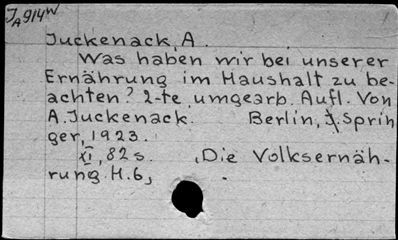 JA914W
Juckenack, A.
Was haben wir bei unserer
Ernährung im Haushalt zu be-
achten? 2-te umgearb. Aufl. Von
A. Juckenack. Berlin, J. Sprin
ger, 1923.
XI, 82 s. (Die Volksernäh-
rung. H. 6)